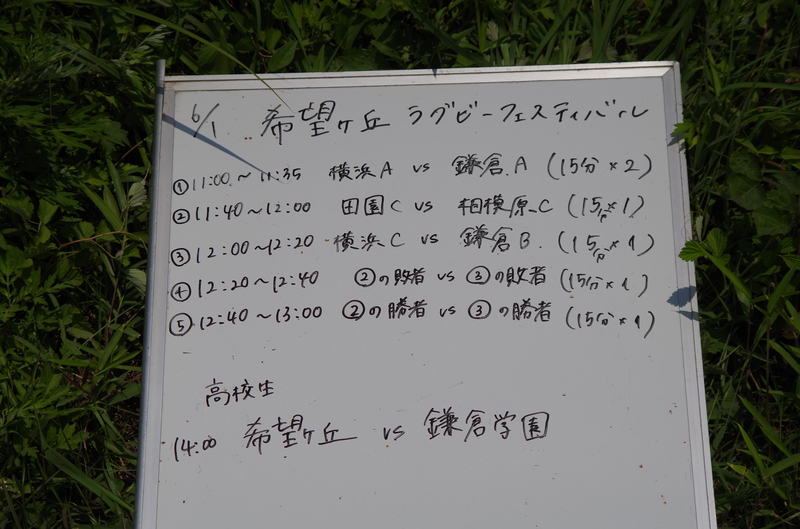 6/1 希望ヶ丘 ラグビーフェスティバル
①11:00～11:35 横浜A vs 鎌倉.A (15分×2)
②11:40～12:00 田園C vs 相模原.C (15分×1)
③12:00～12:20 横浜C vs 鎌倉B. (15分×1)
④12:20～12:40 ②の敗者 vs ③の敗者 (15分×1)
⑤12:40～13:00 ②の勝者 vs ③の勝者 (15分×1)
高校生
14:00 希望ヶ丘 vs 鎌倉学園